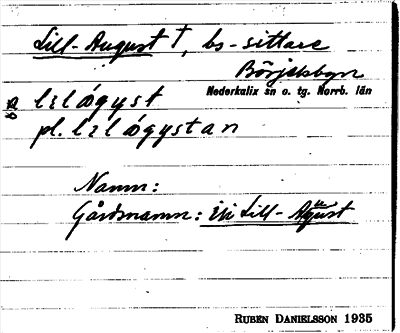 Lill-August †, bs-sittare
Börjelsbyn
Nederkalix sn o. tg. Norrb. län
lɛlågyst
pl. lɛlågystan
Namn:
Gårdsnamn: in Lill-August
RUBEN DANIELSSON 1935